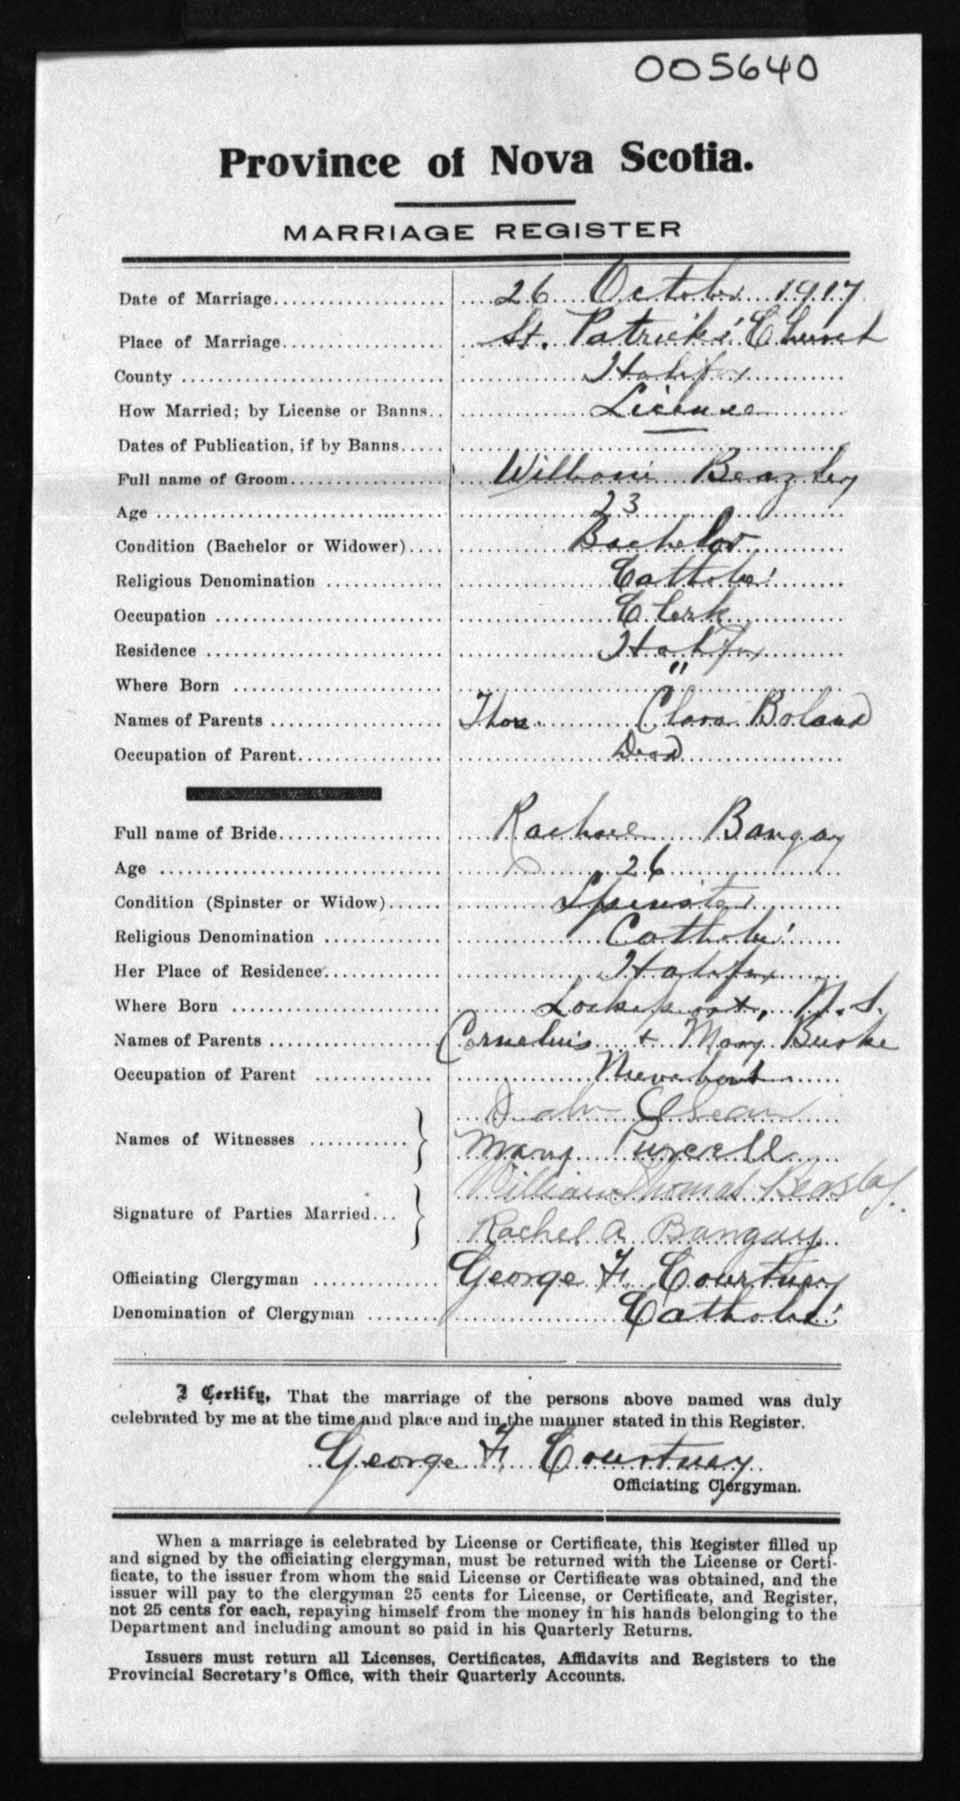 005640
Province of Nova Scotia.
MARRIAGE REGISTER
Date of Marriage 26 October 1917
Place of Marriage St. Patrick's Church
County Halifax
How Married; by License or Banns License
Dates of Publication, if by Banns
Full name of Groom William Beazley
Age 23
Condition (Bachelor or Widower) Bachelor
Religious Denomination Catholic
Occupation Clerk
Residence Halifax
Where Born "
Names of Parents Thos. Clara Boland
Occupation of Parent Dead
Full name of Bride Rachael Bangay
Age 26
Condition (Spinster or Widow) Spinster
Religious Denomination Catholic
Her Place of Residence Halifax
Where Born Lockeport, N.S.
Names of Parents Cornelius + Mary Burke
Occupation of Parent
Names of Witnesses John
Mary Purcell
Signature of Parties Married William Thomas Beazley.
Rachel A Bangay
Officiating Clergyman George F. Courtney
Denomination of Clergyman Catholic
I Certify, That the marriage of the persons above named was duly
celebrated by me at the time and place and in the manner stated in this Register.
George F. Courtney
Officiating Clergyman.
When a marriage is celebrated by License or Certificate, this Register filled up
and signed by the officiating clergyman, must be returned with the License or Certi-
ficate, to the issuer from whom the said License or Certificate was obtained, and the
issuer will pay to the clergyman 25 cents for License, or Certificate, and Register,
not 25 cents for each, repaying himself from the money in his hands belonging to the
Department and including amount so paid in his Quarterly Returns.
Issuers must return all Licenses, Certificates, Affidavits and Registers to the
Provincial Secretary's Office, with their Quarterly Accounts.